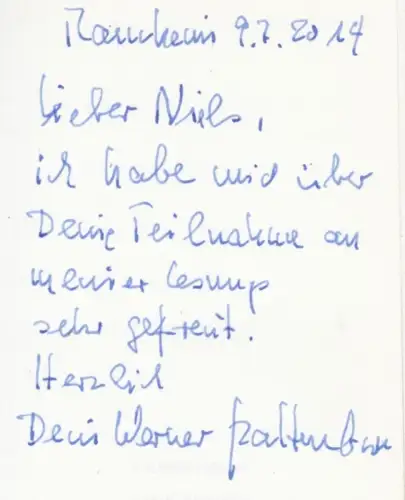 Mannheim 9.7.2014
Lieber Niels,
ich habe mich über
Deine Teilnahme an
meiner Lesung
sehr gefreut.
Herzlich
Dein Werner